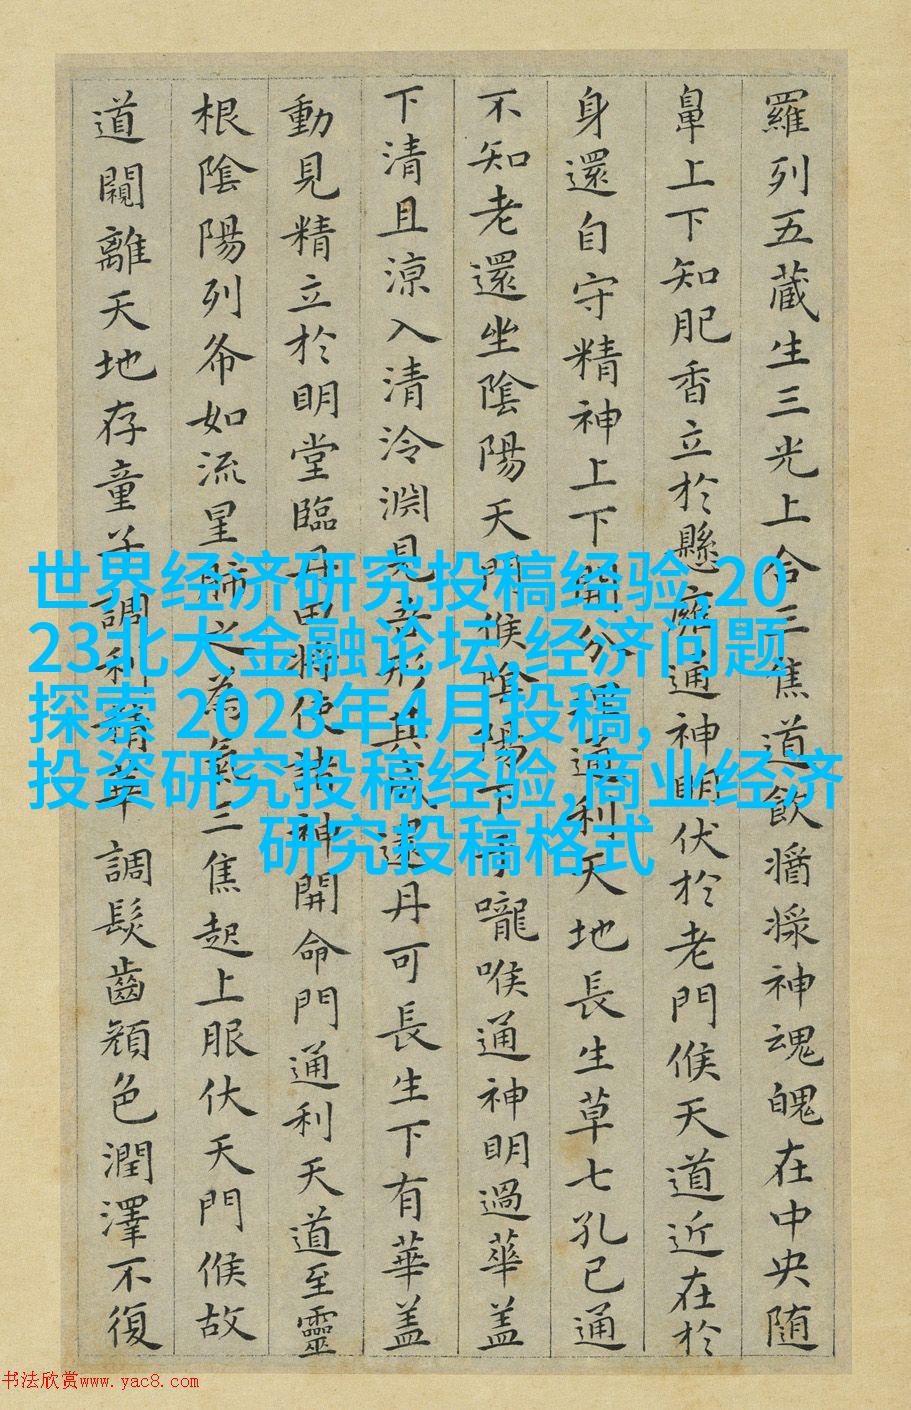 羅列五藏生三光上合三焦道飲醬漿神魂魄在中央随
鼻上下知肥香立於懸廱通神明伏於老門候天道近在於
身還自守精神上下開分理通利天地長生草七孔已通
不知老還坐陰陽天門候陰陽下于嚨喉通神明過華盖
下清且涼入清泠淵見吾形其成還丹可長生下有華盖
動見精立於明堂臨丹田將使諸神開命門通利天道至靈
根陰陽列布如流星肺之為氣三焦起上服伏天門候故
道闚離天地存童子調利精華調髮齒顏色潤澤不復
世界经济研究投稿经验,20
23北大金融论坛,经济问题
探索 2023年4月投稿,
投资研究投稿经验,商业经济
研究投稿格式
书法欣赏www.yac8.com